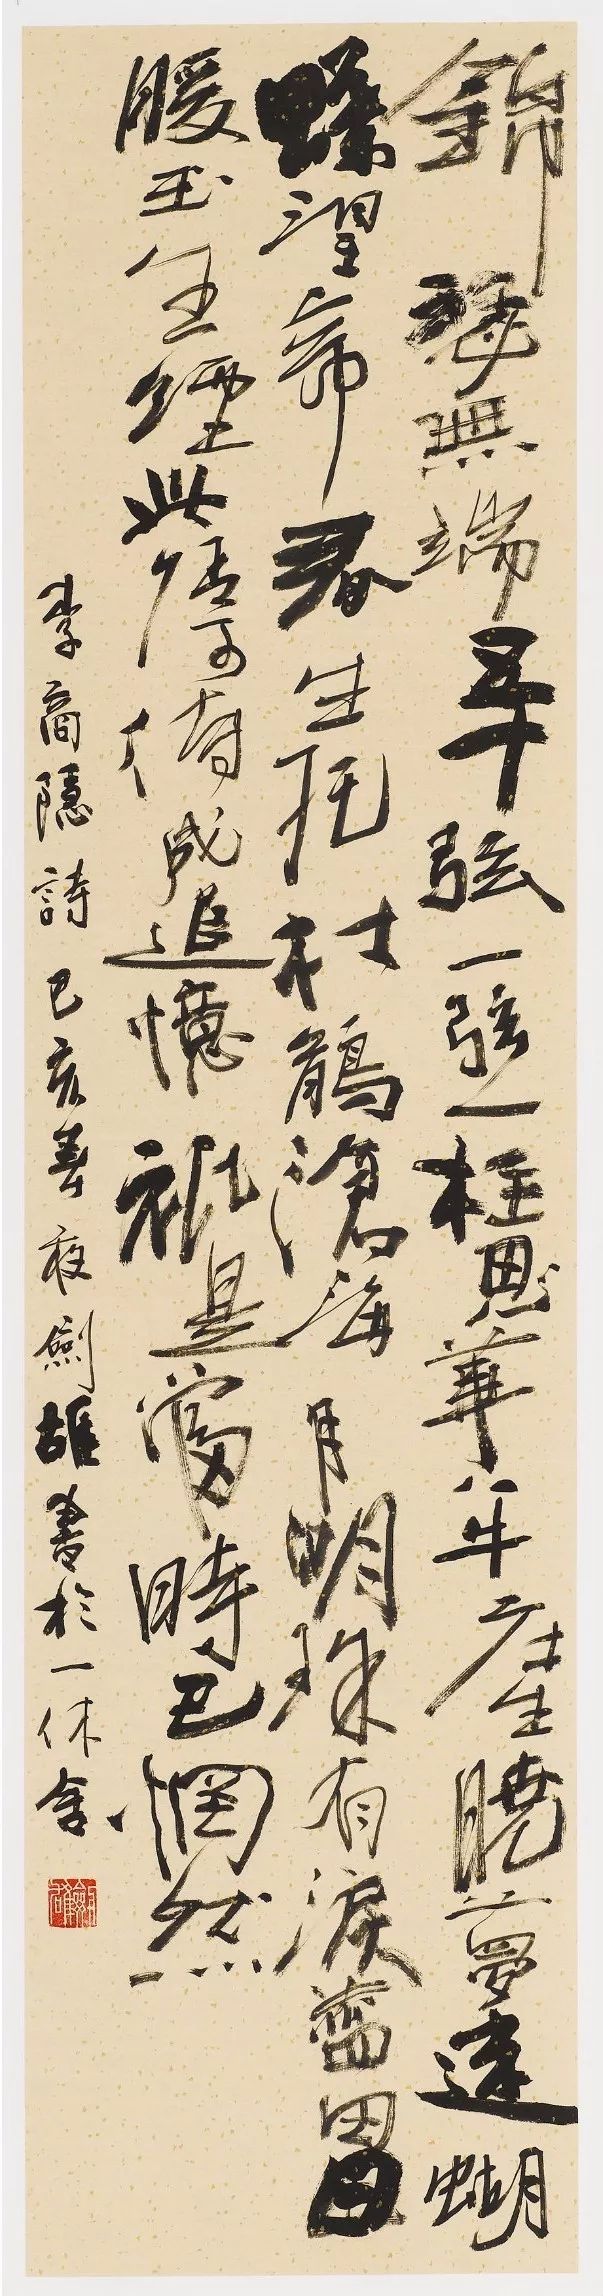 錦瑟無端五十弦一弦一柱思華年庄生曉夢迷蝴
蝶望帝春生托杜鵑滄海月明珠有淚藍田日
暖玉生煙此情可待成追憶祇是當時已惘然
李商隱詩己亥春夜劍雄書於一休舍
劍雄